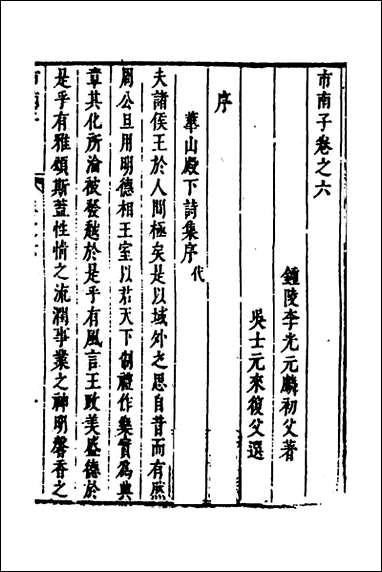 市南子卷之六
鍾陵李光元麟初父著
吳士元來復父選
序
華山殿下詩集序代
夫諸侯王於人間極矣是以域外之思自昔而有然
周公旦用明德相王室以君天下制禮作樂實為典
章其化所淪被發越於是乎有風言王政美盛德於
是乎有雅頌斯蓋性情之流潤事業之神明馨香之